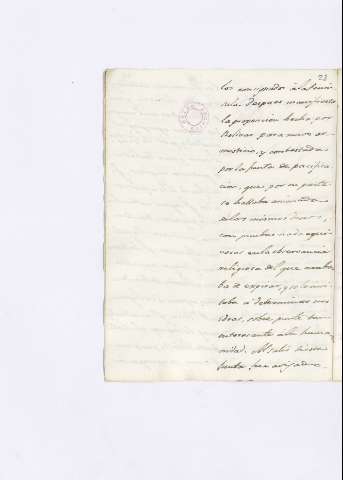 23
los emigrados á la Penin
sula. Despues manifiesto
la proposicion hecha por
Bolivar para nuevo ar
misticio, y contestada
por la Junta de pacifica
cion, que por su parte
se hallaba animada
de los mismos deseos,
con pruebas nada equi
vocas en la observancia
religiosa del que acaba
ba de expirar, y se limi
taba á determinar sus
ideas, sobre punto tan
interesante á la huma
nidad. Al salir nuestra
Junta para